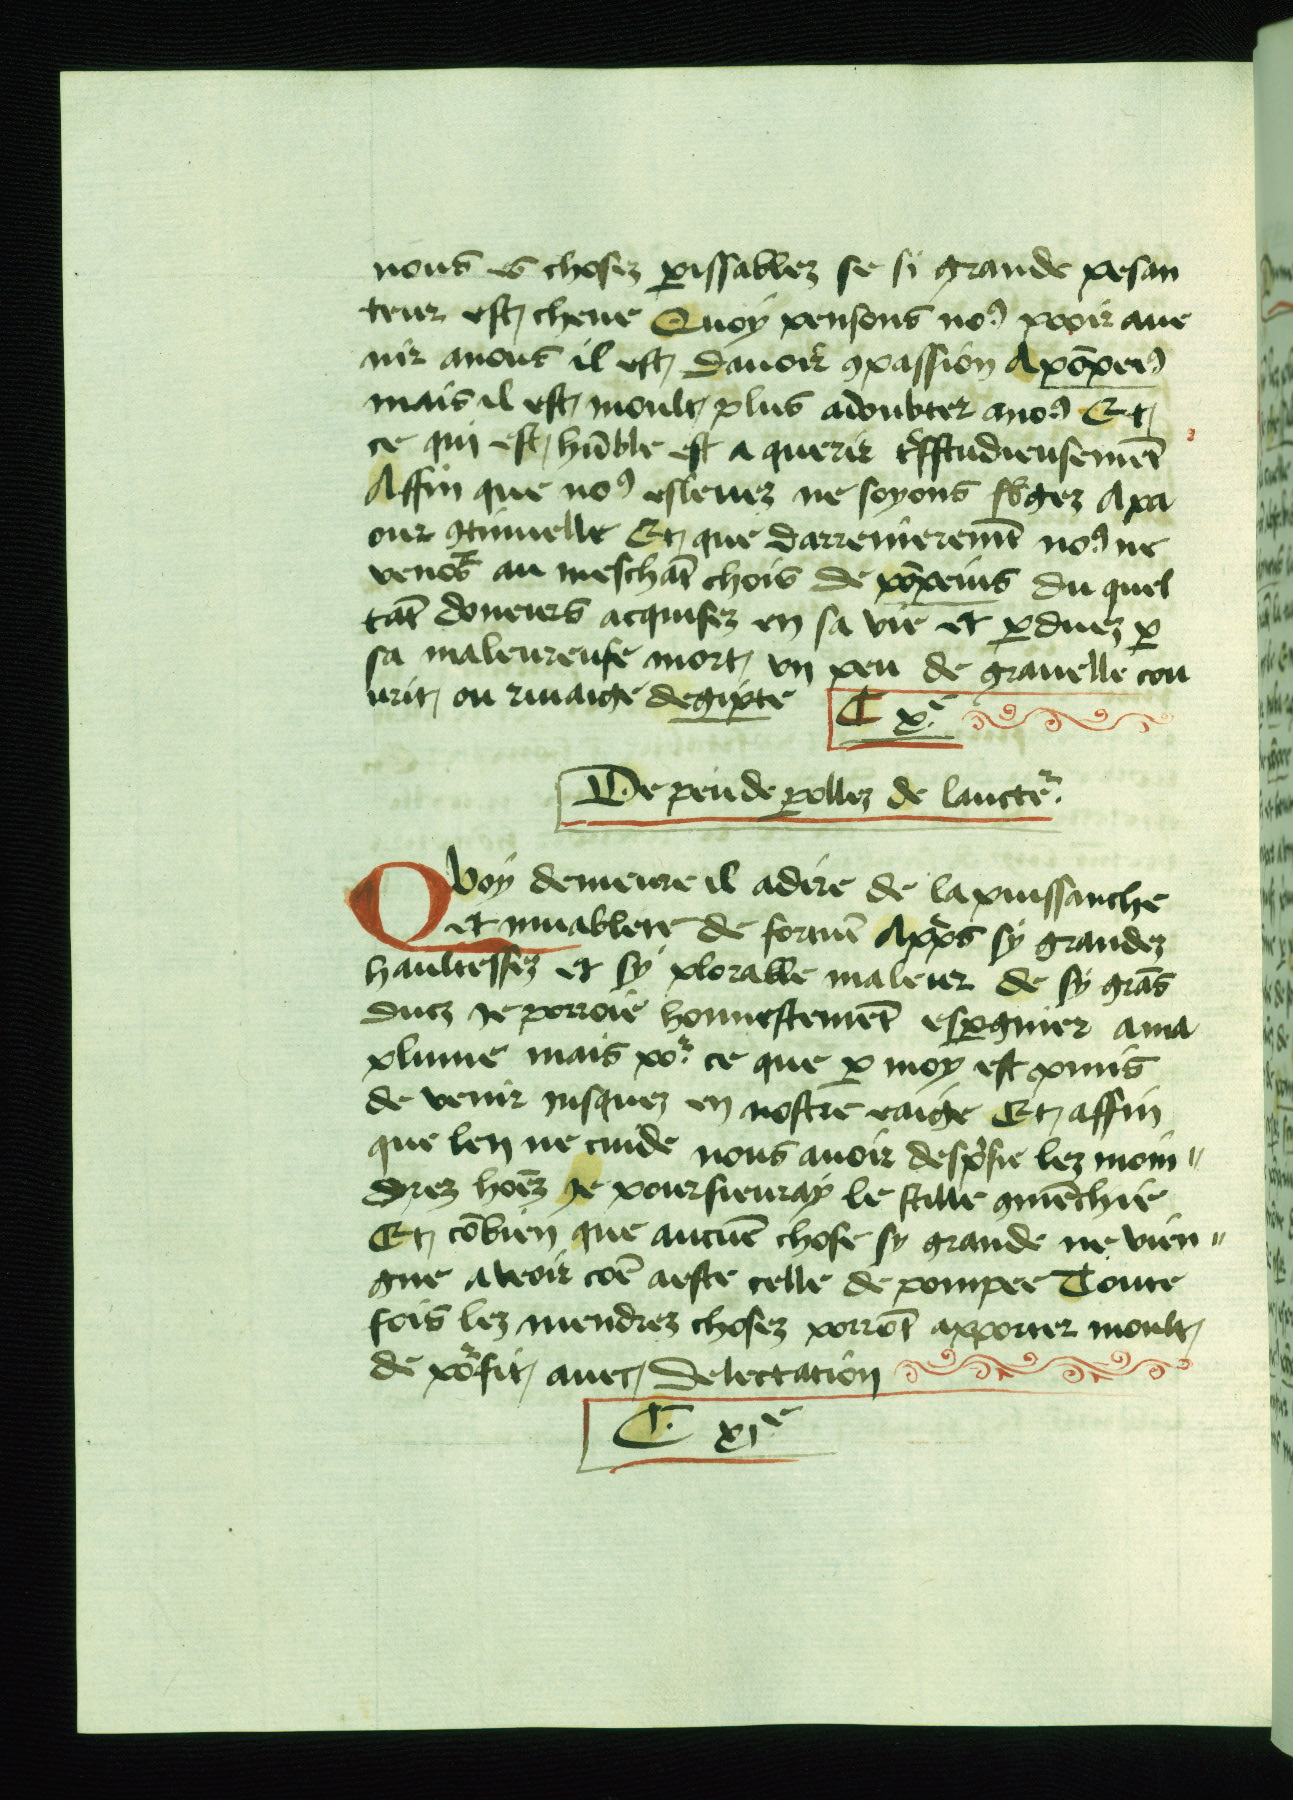 nous es chosez ꝑissablez se si grande pesan
teur est cheue Quoy pensons noꝰ pooir aue
nir anous il est dauoir ꝯpassion Apõpeiꝰ
mais il est moult plus adoubter anoꝰ Et
ce qui est hũble est a querir
Affin que noꝰ esleuez ne soyons sbgez Apa
our ꝯtinuelle Et que darrenieremẽt noꝰ ne
venõs au meschãt chois de põpeius du quel
tãt doneurs acquisez en sa vie et ꝑduez ꝑ
sa maleureuse mort vn peu de grauelle cou
urit ou riuaige degipte
C xᵉ
De peude ꝑollez de laucteʳ
Quoy demeure il adire de la puissanche
et muablete de fortũe Apꝛ̃s sy grandez
haultessez et sy plorable maleur de sy grãs
ducz Je porroie honnestemẽt espꝑgnier ama
plume mais poʳ ce que ꝑ moy est pmis
de venir jusquez en nostre eaige Et affin
que len ne cuide nous auoir despͥsie lez moin〃
drez hoẽz Je poursieuray le stille ꝯmẽchie
Et cõbien que aucuẽ chose sy grande ne vien〃
gne aveoir coẽ aeste celle de pompee Toute
fois lez mendrez chosez porrõt apporter moult
de pͦrfit auec delectation
C. xjᵉ